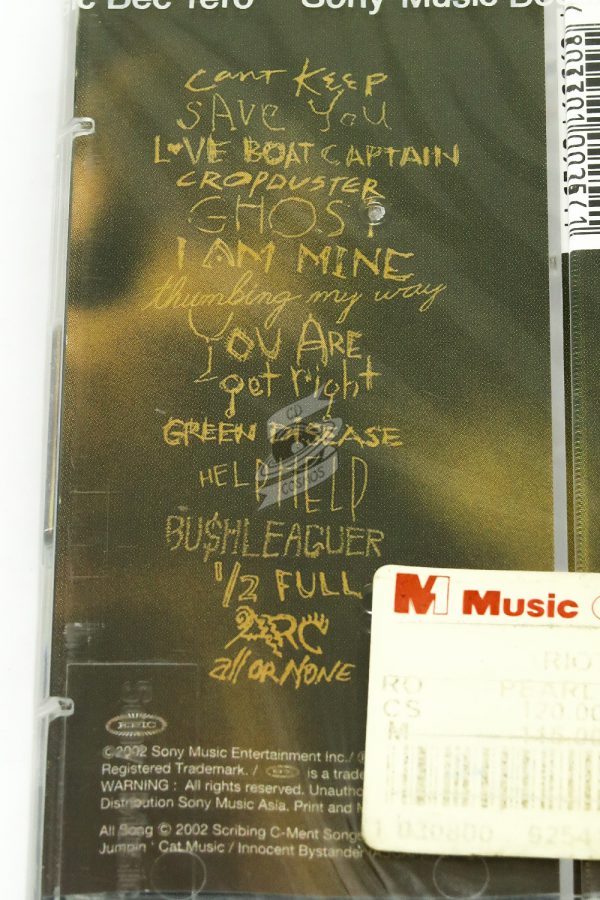 ic Bec Tero    Sony Music Bec
cant KEEP
SAVE YOU
LOVE BOAT CAPTAIN
CROPDUSTER
GHOST
I AM MINE
thumbing my way
YOU ARE
get right
GREEN DISEASE
HELP HELP
BU$HLEAGUER
1/2 FULL
ARC
all OR NONE
CD
COSMOS
EPIC
©2002 Sony Music Entertainment Inc./
Registered Trademark. / is a trade
WARNING : All rights reserved. Unautho
Distribution Sony Music Asia. Print and
All Song © 2002 Scribing C-Ment Songs
Jumpin ' Cat Music / Innocent Bystander
Music
RIO
RO PEARL
CS 120.00
M